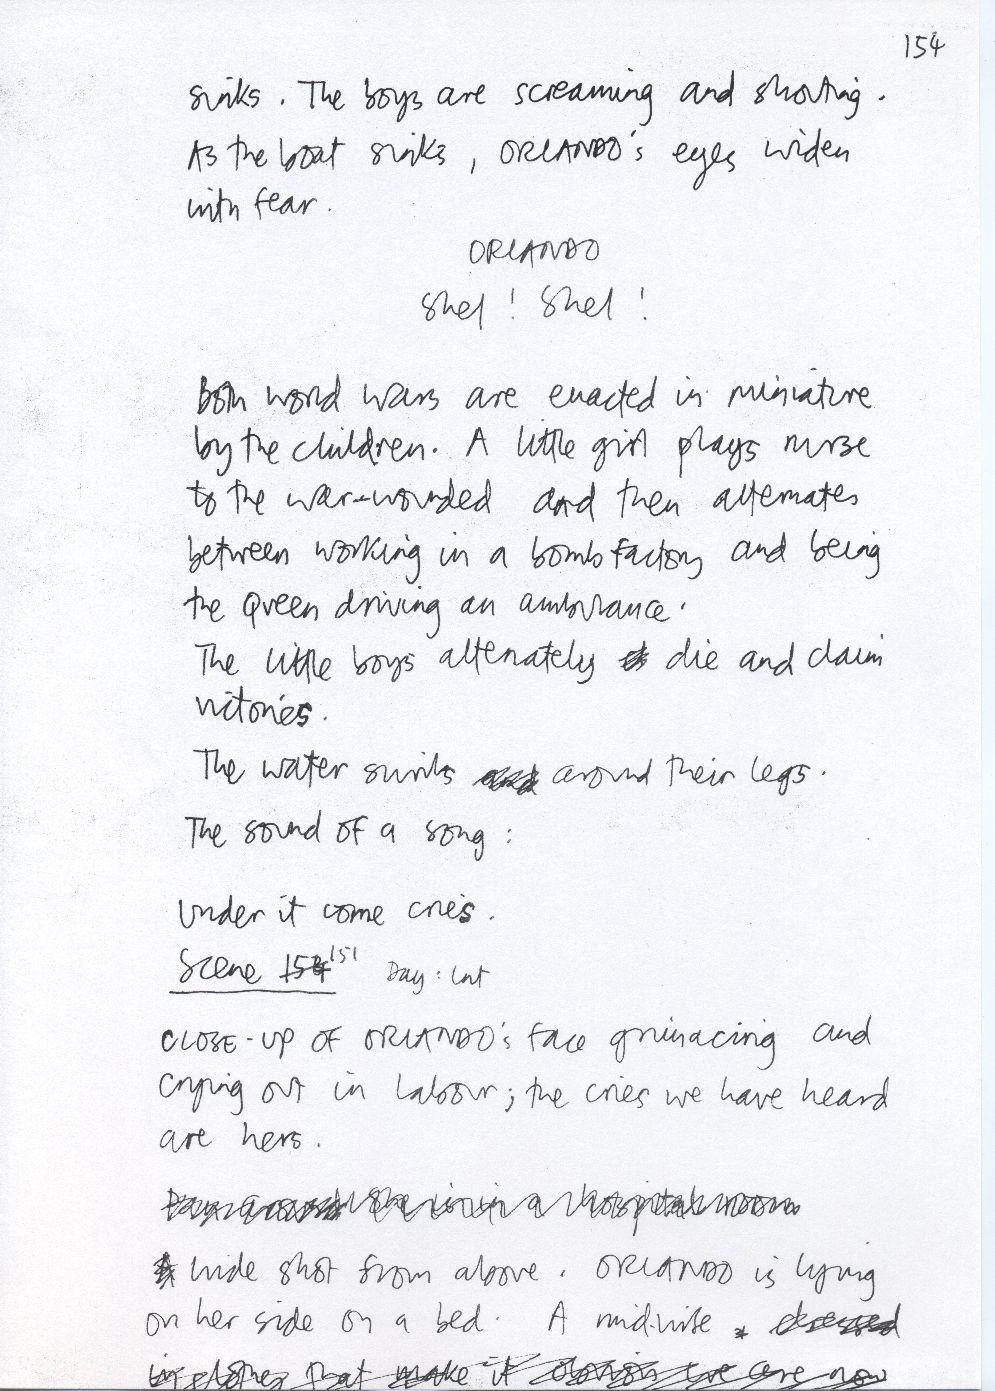 154
sinks. The boys are screaming and shouting.
As the boat sinks, ORLANDO's eyes widen
with fear.
ORLANDO
Shel! Shel!
Both world wars are enacted in miniature
by the children. A little girl plays nurse
to the war-wounded and then alternates
between working in a bomb factory and being
the Queen driving an ambulance.
The little boys alternately die and claim
victories.
The water swirls around their legs.
The sound of a song:
Under it come cries.
Scene 154 151 Day: Int
CLOSE-UP OF ORLANDO's face grimacing and
crying out in labour; the cries we have heard
are hers.
She is in a hospital room
Wide shot from above. ORLANDO is lying
on her side on a bed. A midwife dressed
in clothes that make it obvious we are now